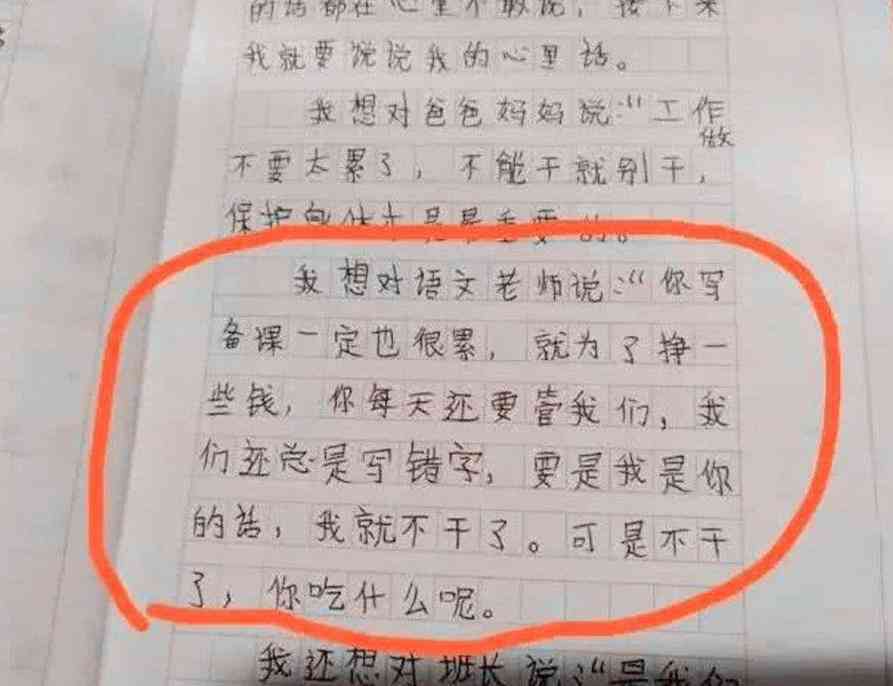 的话都在心里不敢说，接下来
我就要说说我的心里话。
我想对爸爸妈妈说：“工作
做
不要太累了，不能干就别干，
保护身体才是最重要的。
我想对语文老师说：“你写
备课一定也很累，就为了挣一
些钱，你每天还要管我们，我
们还总是写错字，要是我是你
的话，我就不干了。可是不干
了，你吃什么呢。
我还想对班长说：“是我们